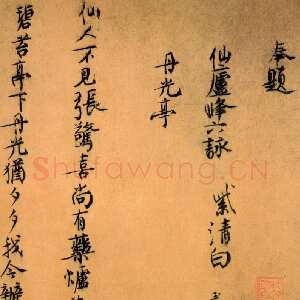 奉題
仙廬峰六詠 紫清白
丹光亭
仙人不見張驚喜尚有藥爐
碧苔亭下丹光猶夕夕我今辦
Shufawang.CN